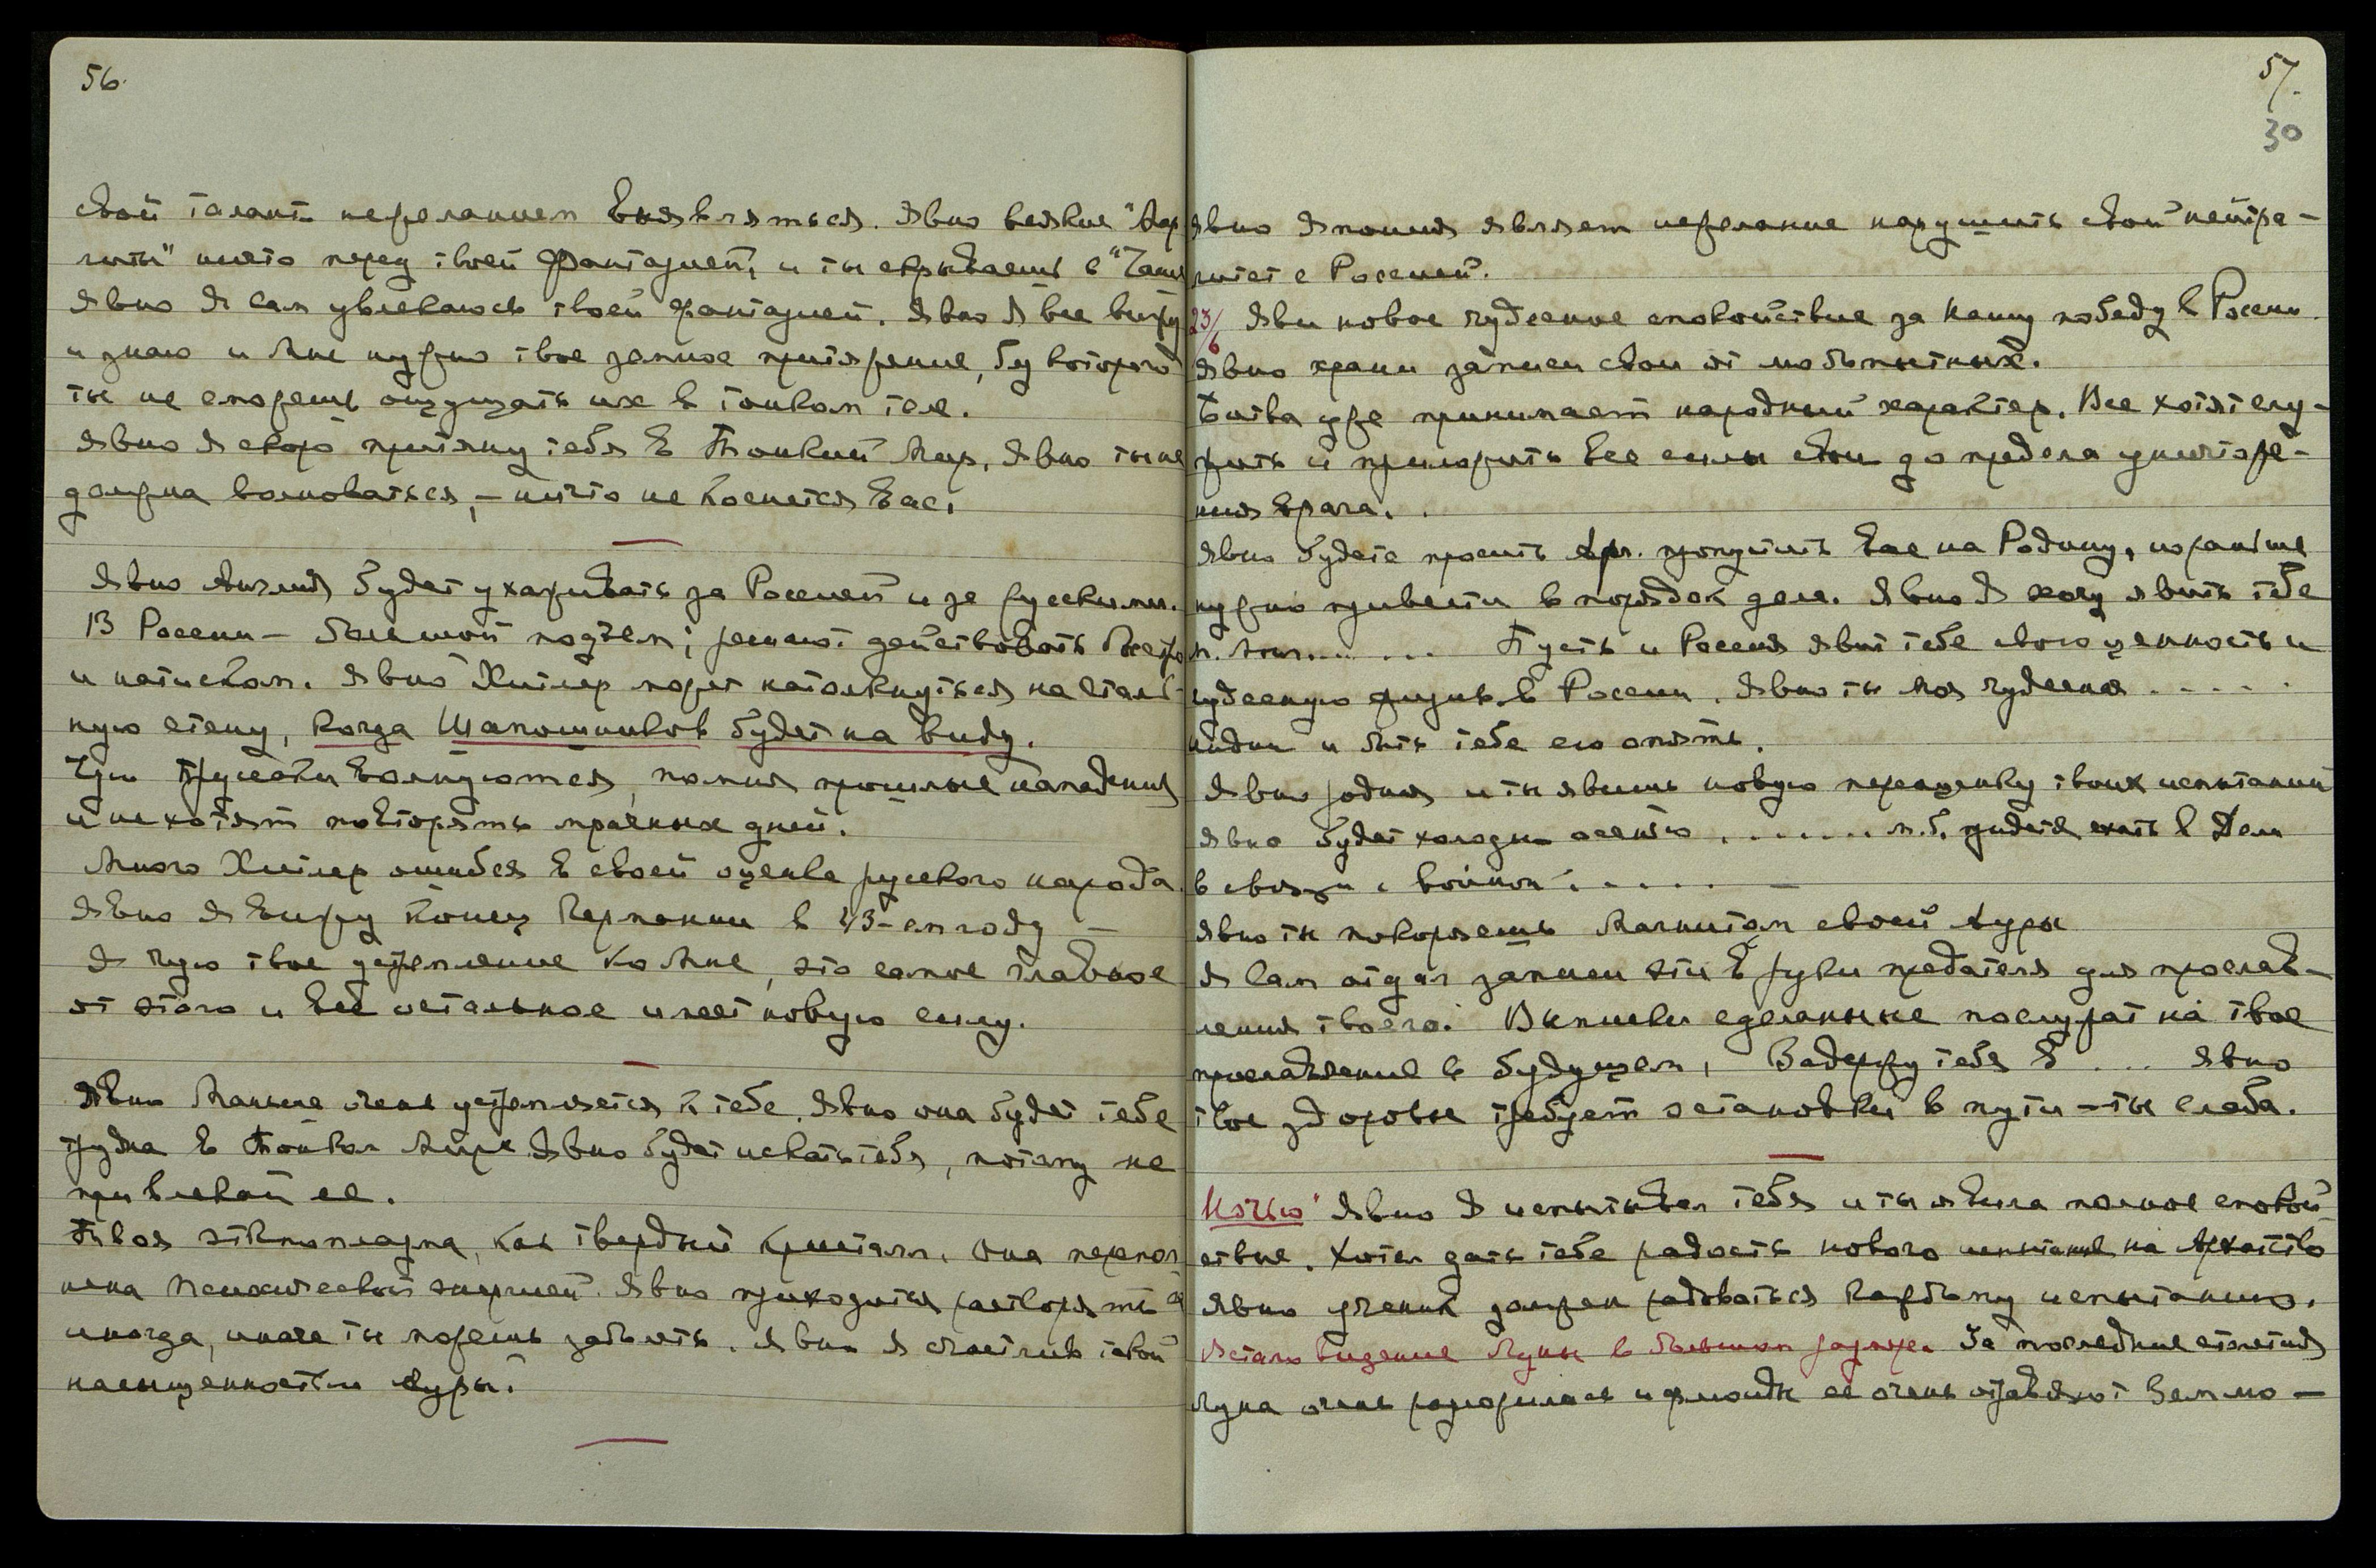 56.
свой талант нежеланием выявляться. Явно всякие "Мар
ничто перед твоей Фантазией, и ты скрываешь в "Чаше
Явно Я сам увлекаюсь твоей фантазией. Явно Я все вижу
и знаю и Мне нужно твое земное притяжение, без которого
ты не сможешь ощущать их в тонком теле.
Явно Я скоро притяну тебя в Тонкий Мир. Явно ты не
должна волноваться, – ничто не коснется Вас.
Явно Англия будет ухаживать за Россией и за русскими.
В России – большой подъем; решают действовать
и натиском. Явно Хитлер может натолкнуться на сталь-
ную стену, когда Шапошников будет на виду.
Чую Пруссаки волнуются, помня прошлые нападения
и не хотят повторять мрачных дней.
Много Хитлер ошибся в своей оценке русского народа.
Явно Я вижу конец Германии в 43-ем году –
Я чую твое устремление ко Мне, это самое главное
от этого и все остальное имеет новую силу.
Явно очень устремляется к тебе. Явно она будет тебе
трудна в Тонком Мире. Явно будет искать тебя, потому не
привлекай ее.
Твоя эктоплазма, как твердый кристалл. Она перепол
нена психической энергией. Явно приходится растворять ее
иногда, иначе ты можешь заболеть. Явно Я счастлив такой
насыщенностью ауры.
57.
30
Явно Япония являет нежелание нарушить свой нейтра-
литет с Россией.
23/6 Яви новое чудесное спокойствие за Нашу победу в России.
Явно храни записи свои от любопытных.
Битва уже принимает народный характер. Все хотят слу-
жить и приложить все силы свои до предела уничтоже-
ния врага.
Явно будете просить пропустить Вас на Родину, но раньше
нужно привести в порядок дела. Явно Я хочу явить тебе
....... Пусть и Россия явит тебе свою ценность и
чудесную жизнь в России. Явно ты Моя чудесная .....
и быть тебе ею опять.
Явно родная и ты явишь новую переоценку твоих испытаний
Явно будет холодно осенью ....... м.б. придется ехать в Дели
в связи с войной ..... –
Явно ты покоряешь Магнитом своей Ауры
Я Сам отдал записи эти в руки предателя для прослав-
ления твоего. Выписки сделанные послужат на твое
прославление в будущем. Задержу тебя в ... Явно
твое здоровье требует остановки в пути – ты слаба.
Ночью Явно Я испытывал тебя и ты явила полное спокой
ствие. Хотел дать тебе радость нового испытания на Архатство
Явно ученик должен радоваться каждому испытанию.
Встало видение Луны в большом размере. За последние столетия
Луна очень разложилась и флюиды ее очень отравляют Землю –